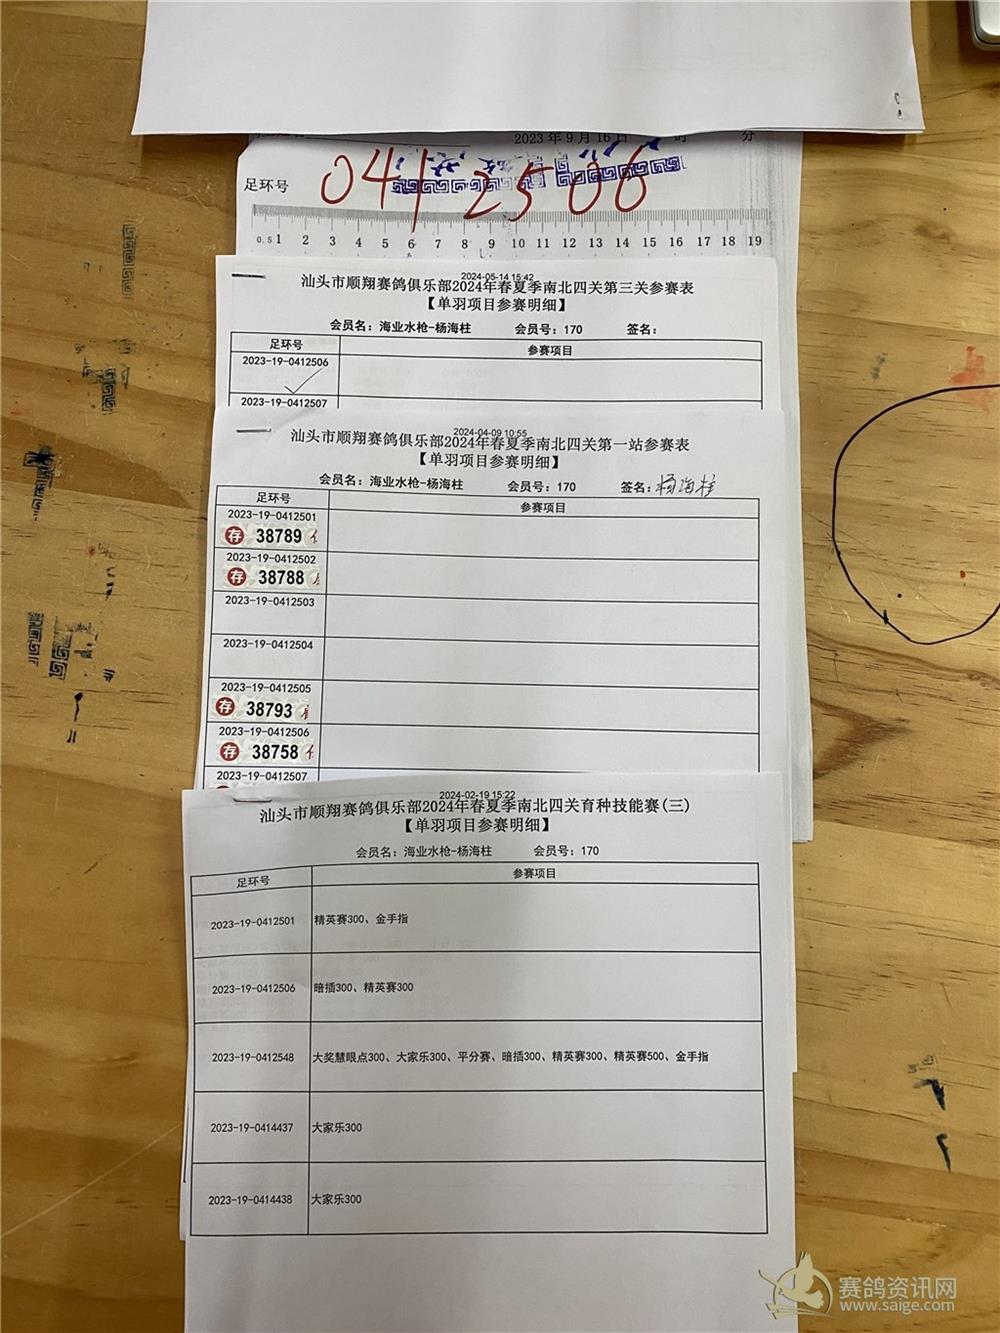 2023年9月16日 时 分
足环号 0412506
0.5 1 2 3 4 5 6 7 8 9 10 11 12 13 14 15 16 17 18 19
2024-05-14 15:42
汕头市顺翔赛鸽俱乐部2024年春夏季南北四关第三关参赛表
【单羽项目参赛明细】
会员名：海业水枪-杨海柱 会员号：170 签名：
足环号 参赛项目
2023-19-0412506
2023-19-0412507
2024-04-09 10:55
汕头市顺翔赛鸽俱乐部2024年春夏季南北四关第一站参赛表
【单羽项目参赛明细】
会员名：海业水枪-杨海柱 会员号：170 签名：杨海柱
足环号 参赛项目
2023-19-0412501
存 38789
2023-19-0412502
存 38788
2023-19-0412503
2023-19-0412504
2023-19-0412505
存 38793
2023-19-0412506
存 38758
2023-19-0412507
2024-02-19 15:22
汕头市顺翔赛鸽俱乐部2024年春夏季南北四关育种技能赛(三)
【单羽项目参赛明细】
会员名：海业水枪-杨海柱 会员号：170
足环号 参赛项目
2023-19-0412501 精英赛300、金手指
2023-19-0412506 暗插300、精英赛300
2023-19-0412548 大奖慧眼点300、大家乐300、平分赛、暗插300、精英赛300、精英赛500、金手指
2023-19-0414437 大家乐300
2023-19-0414438 大家乐300
赛鸽资讯网
www.saige.com